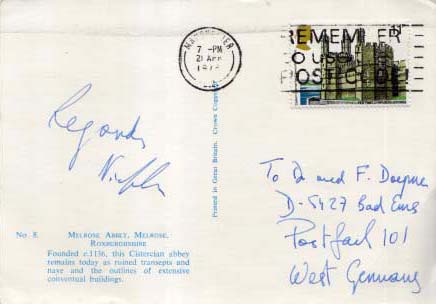 MANCHESTER
7 -PM
21 APR
REMEMBER
TO USE
POSTCODE
Regards
No. 8. MELROSE ABBEY, MELROSE,
ROXBURGHSHIRE
Founded c.1136, this Cistercian abbey
remains today as ruined transepts and
nave and the outlines of extensive
conventual buildings.
Printed in Great Britain. Crown Copyright
To Dr and F. Doepner
D-5427 Bad Ems
Postfach 101
West Germany